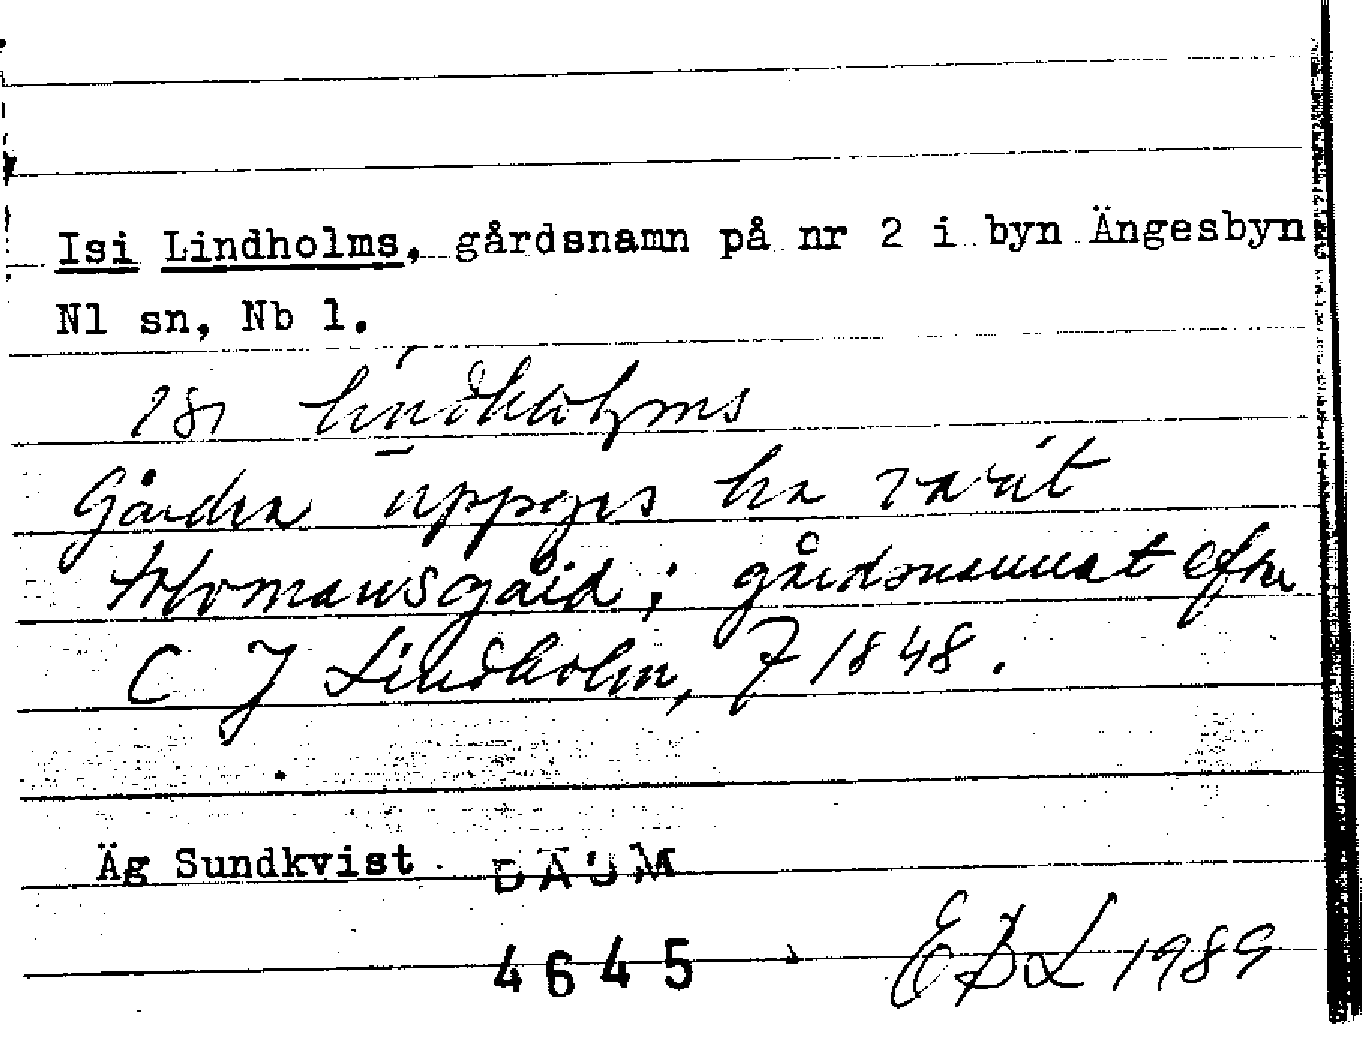 Isi Lindholms, gårdsnamn på nr 2 i byn Ängesbyn
Nl sn, Nb l.
Gården uppges ha varit
gårdsnamnet efter
C J Lindholm, f 1848.
Äg Sundkvist DAUM
4645 EBL 1989